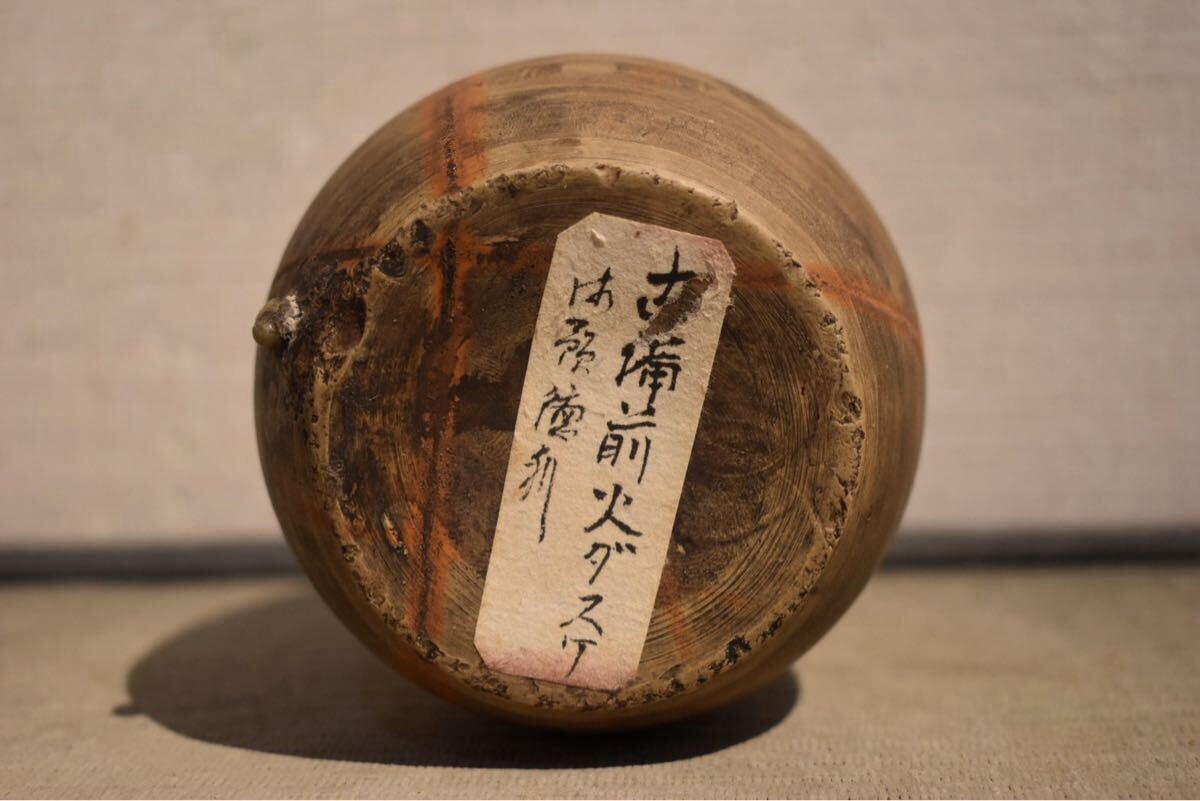 古備前火ダスケ
徳利